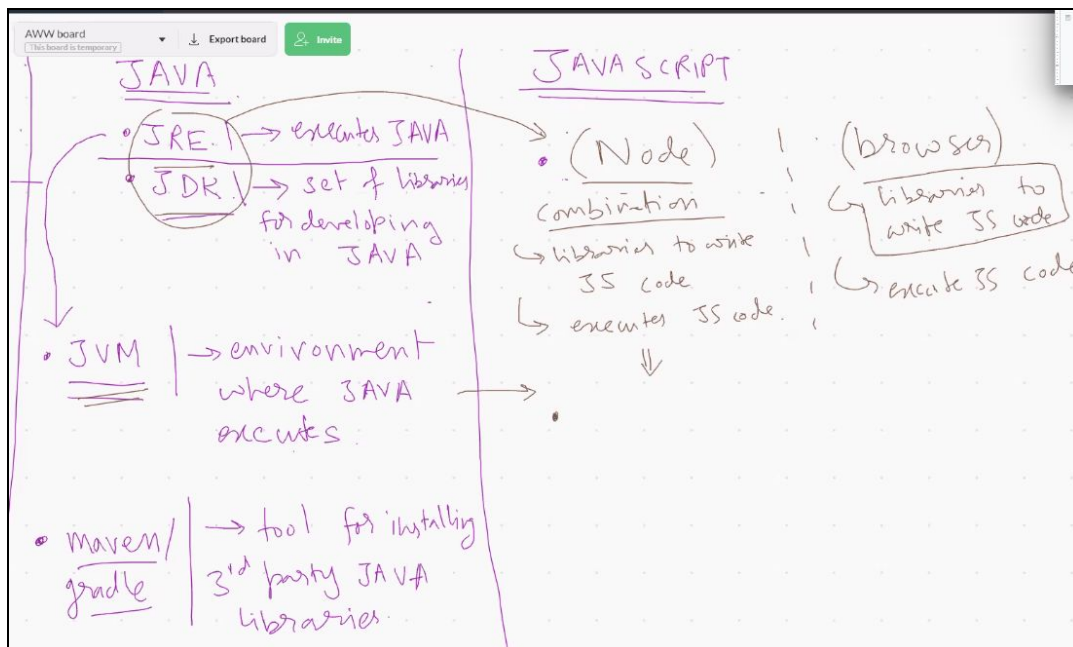 AWW board
This board is temporary
Export board
Invite
JAVA
• JRE | → executes JAVA
• JDK | → set of libraries
for developing
in JAVA
• JVM | → environment
where JAVA
executes.
• maven/
gradle
→ tool for installing
3rd party JAVA
libraries.
JAVASCRIPT
• (Node)
combination
↳ libraries to write
JS code
↳ executes JS code.
⇓
→ •
(browser)
↳ libraries to
write JS code
↳ execute JS code